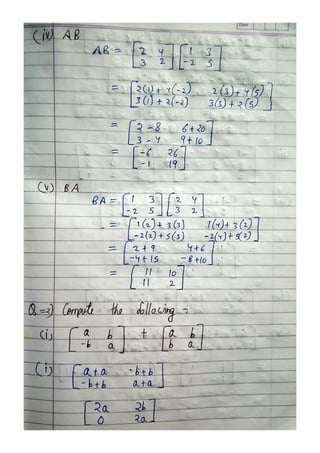 (iv) AB
AB = [2 4 3 2] [1 3 -2 5]
= [2(1)+4(-2) 2(3)+4(5)
3(1)+2(-2) 3(3)+2(5)]
= [2-8 6+20
3-4 9+10]
= [-6 26
-1 19]
(v) BA
BA = [1 3 -2 5] [2 4 3 2]
= [1(2)+3(3) 1(4)+3(2)
-2(2)+5(3) -2(4)+5(2)]
= [2+9 4+6
-4+15 -8+10]
= [11 10
11 2]
Q=3) Compute the following :-
(i) [a b -b a] + [a b b a]
(i) [a+a -b+b
-b+b a+a]
[2a 2b
0 2a]